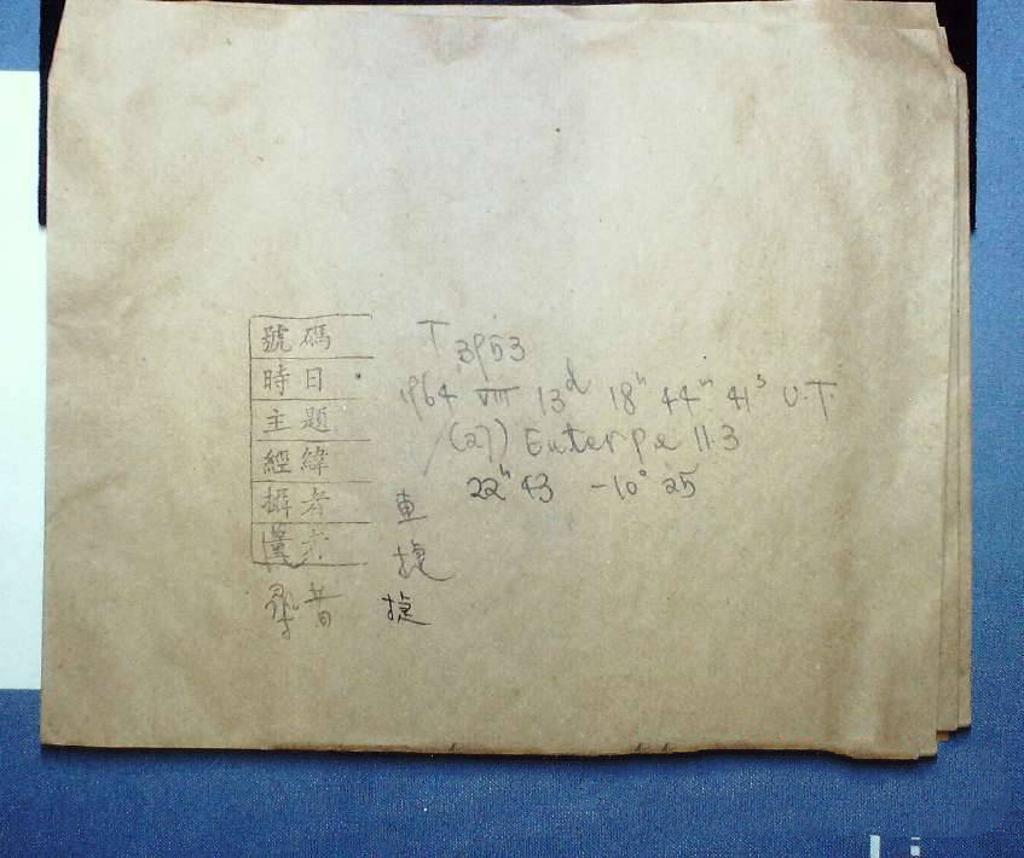 號碼 T 3953
時日 1964 VIII 13d 18h 44m 41s U.T.
主題 (27) Euterpe 11.3
經緯 22h 43 -10° 25
攝者 車
者 捷
者 捷